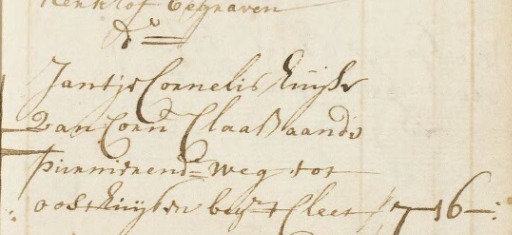 Kerkhof begraven
do
Jantje Cornelis huijsv
van Corn Claas aande
purmerend= weg tot
oosthuijsen beg + Cleet ƒ 7-16-: